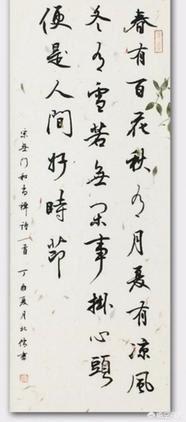 春有百花秋有月夏有凉風
冬有雪若無闲事掛心頭
便是人間好時節
宋無门和尚禅诗一首 丁酉夏月